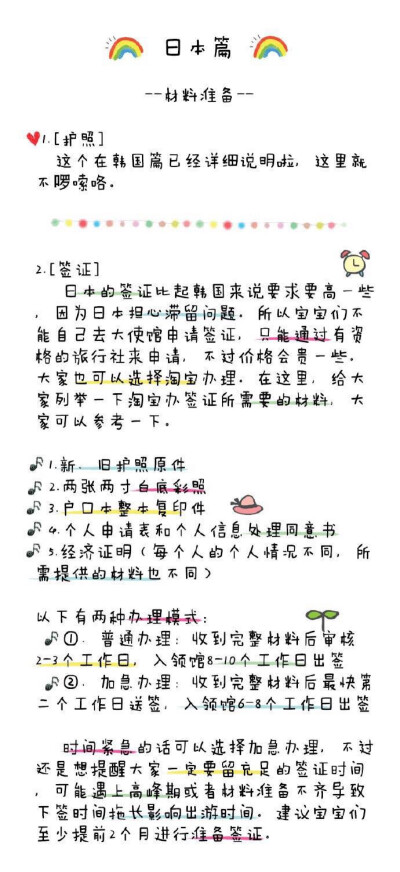 日本篇
--材料准备--
1.[护照]
这个在韩国篇已经详细说明啦, 这里就
不啰嗦咯。
2.[签证]
日本的签证比起韩国来说要求要高一些
, 因为日本担心滞留问题。所以宝宝们不
能自己去大使馆申请签证, 只能通过有资
格的旅行社来申请, 不过价格会贵一些。
大家也可以选择淘宝办理。在这里, 给大
家列举一下淘宝办签证所需要的材料, 大
家可以参考一下。
1.新、旧护照原件
2.两张两寸白底彩照
3.户口本整本复印件
4.个人申请表和个人信息处理同意书
5.经济证明(每个人的个人情况不同, 所
需提供的材料也不同)
以下有两种办理模式:
①. 普通办理: 收到完整材料后审核
2-3个工作日, 入领馆8-10个工作日出签
②. 加急办理: 收到完整材料后最快第
二个工作日送签, 入领馆6-8个工作日出签
时间紧急的话可以选择加急办理, 不过
还是想提醒大家一定要留充足的签证时间
, 可能遇上高峰期或者材料准备不齐导致
下签时间拖长影响出游时间。建议宝宝们
至少提前2个月进行准备签证。